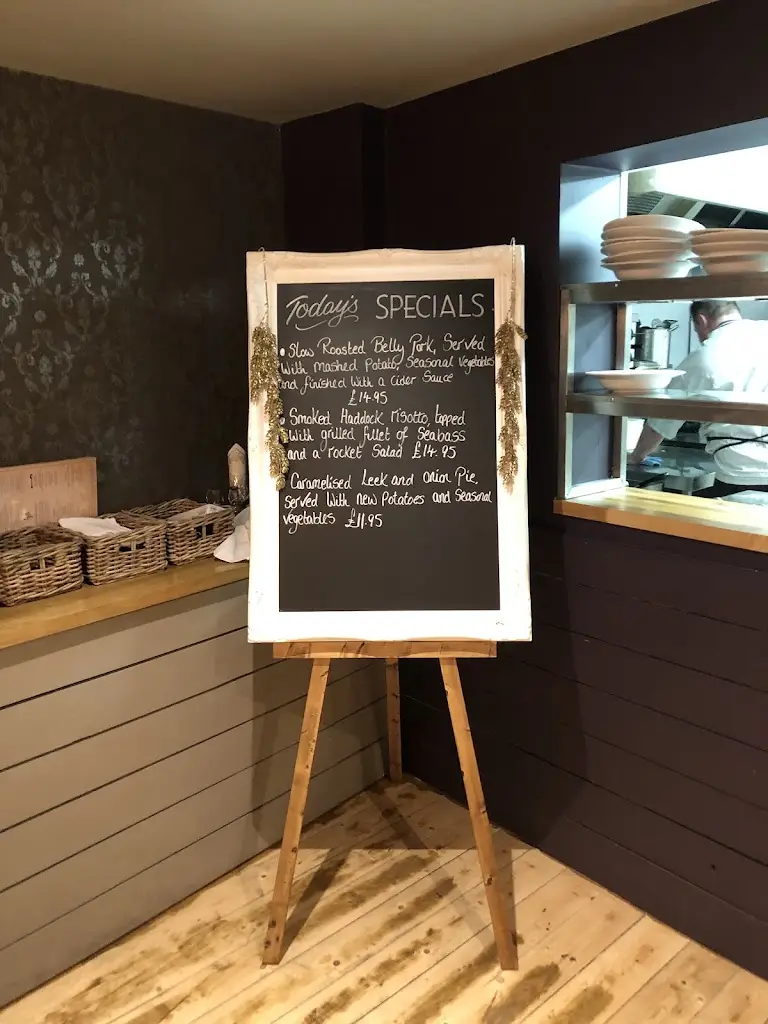 Today's SPECIALS
• Slow Roasted Belly Pork, Served
With mashed Potato, Seasonal Vegetables
and finished With a Cider Sauce
£14.95
• Smoked Haddock risotto, topped
With grilled fillet of Seabass
and a rocket Salad £14.95
• Caramelised Leek and onion Pie,
served With new Potatoes and Seasonal
vegetables £11.95